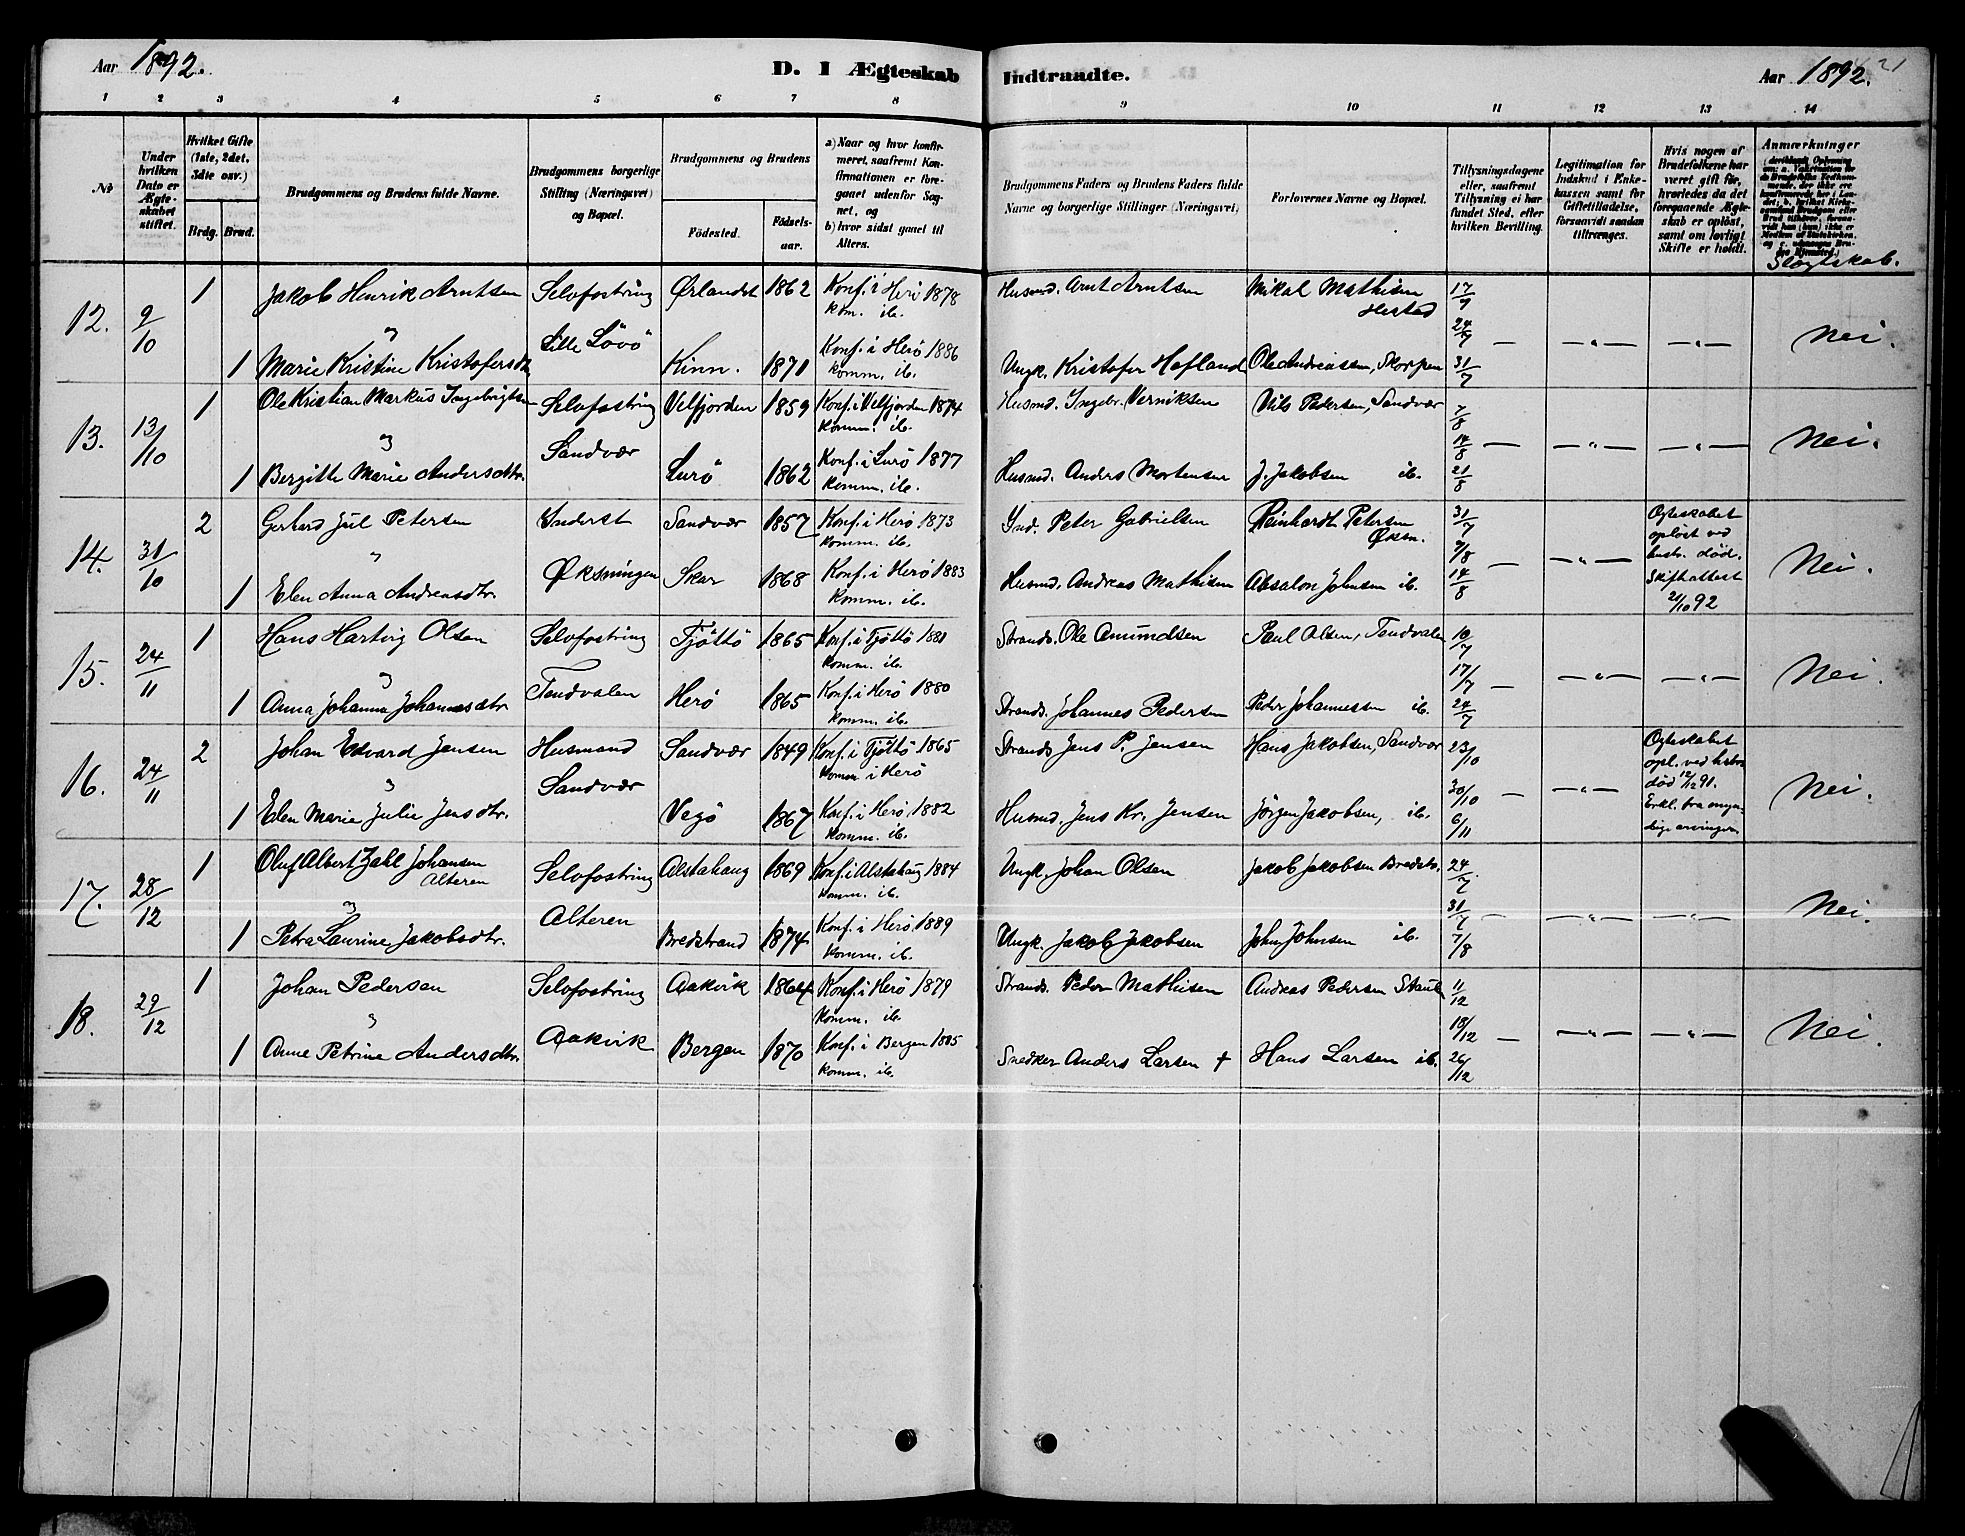 Aar 1892.
D. I Ægteskab Indtraadte.
Aar 1892. 21
1 2 3 4 5 6 7 8 9 10 11 12 13 14
No
Under hvilken Dato er Ægteskabet stiftet.
Hvilket Gifte (1ste, 2det, 3die osv.)
Brdg. Brud.
Brudgommens og Brudens fulde Navne.
Brudgommens borgerlige Stilling (Næringsvei) og Bopæl.
Brudgommens og Brudens
Fødested.
Fødselsaar.
a) Naar og hvor konfirmeret, saafremt Konfirmationen er foregaaet udenfor Sognet, og
b) hvor sidst gaaet til Alters.
Brudgommens Faders og Brudens Faders fulde Navne og borgerlige Stillinger (Næringsvei)
Forlovernes Navne og Bopæl.
Tillysningsdagene eller, saafremt Tillysning ei har fundet Sted, efter hvilken Bevilling.
Legitimation for Indskud i Enkekassen samt for Giftetilladelse, forsaavidt saadan tiltrænges.
Hvis nogen af Brudefolkene har været gift før, hvorledes da det foregaaende Ægteskab er opløst, samt om lovligt Skifte er holdt.
Anmærkninger
Slægtskab.
12. 9/10 1 Jakob Henrik Arntsen Selvfostring Ørlandet 1862 Konf. i Herö 1878 Husmd. Arnt Arntsen Mikal Mathisen 17/7
" Lille Lövö kom. ib. Herstad 24/7 — — " — — " — Nei.
1 Marie Kristine Kristofersdtr. Kinn. 1871 Konf. i Herö 1886 Ungk. Kristofer Hofland Ole Andreassen, Skorpen 31/7
komm. ib.
13. 13/10 1 Ole Kristian Markus Ingebrigtsen Selvfostring Velfjorden 1859 Konf. i Velfjorden 1874 Husmd. Ingebr. Verniksen Nils Pedersen, Sandvær 7/8
" Sandvær komm. ib. 14/8 — — " — — " — Nei.
1 Bergitte Marie Andersdtr. Lurö 1862 Konf. i Lurö 1877 Husmd. Anders Mortensen J. Jakobsen ib. 21/8
komm. ib.
14. 31/10 2 Gerhard Jul Petersen Inderst Sandvær 1857 Konf. i Herö 1873 Ind. Peter Gabrielsen Reinhardt Petersen 31/7 Ægteskabet
" Øksningen komm. ib. Øksn. 7/8 — — " — opløst ved hustr. död. Nei.
1 Elen Anna Andreasdtr. Skar 1868 Konf. i Herö 1883 Husmd. Andreas Mathisen Absalon Johnsen ib. 14/8 Skifteattest
komm. ib. 21/10 92
15. 24/11 1 Hans Hartvig Olsen Selvfostring Tjöttö 1865 Konf. i Tjöttö 1881 Strands. Ole Amundsen Paul Olsen, Tendvalen 10/7
" Tendvalen komm. ib. 17/7 — — " — — " — Nei.
1 Anna Johanna Johannesdtr. Herö 1865 Konf. i Herö 1880 Strands. Johannes Pedersen Peder Johannessen ib. 24/7
komm. ib.
16. 24/11 2 Johan Edvard Jensen Husmand Sandvær 1849 Konf. i Tjöttö 1865 Strands. Jens P. Jensen Hans Jakobsen, Sandvær 23/10 Ægteskabet
" Sandvær Komm. i Herö 30/10 — — " — opl. ved hstr. död 12/12 91. Nei.
1 Elen Marie Julie Jensdtr. Vegö 1867 Konf. i Herö 1882 Husmd. Jens Kr. Jensen Jörgen Jakobsen, ib. 6/11 Erkl. fra myndige arvinger.
komm. ib.
17. 28/12 1 Oluf Albert Zahl Johansen Selvfostring Alstahaug 1869 Konf. i Alstahaug 1884 Ungk. Johan Olsen Jakob Jakobsen Bredstr. 24/7
Alteren " Alteren komm. ib. 31/7 — — " — — " — Nei.
1 Petra Laurine Jakobsdtr. Bredstrand 1874 Konf. i Herö 1889 Ungk. Jakob Jakobsen John Johnsen ib. 7/8
komm. ib.
18. 29/12 1 Johan Pedersen Selvfostring Aakvik 1864 Konf. i Herö 1879 Strands. Peder Mathisen Andreas Pedersen Staul 11/12
" Aakvik komm. ib. 18/12 — — " — — " — Nei.
1 Anne Petrine Andersdtr. Bergen 1870 Konf. i Bergen 1885 Snedker Anders Larsen + Hans Larsen ib. 26/12
komm. ib.